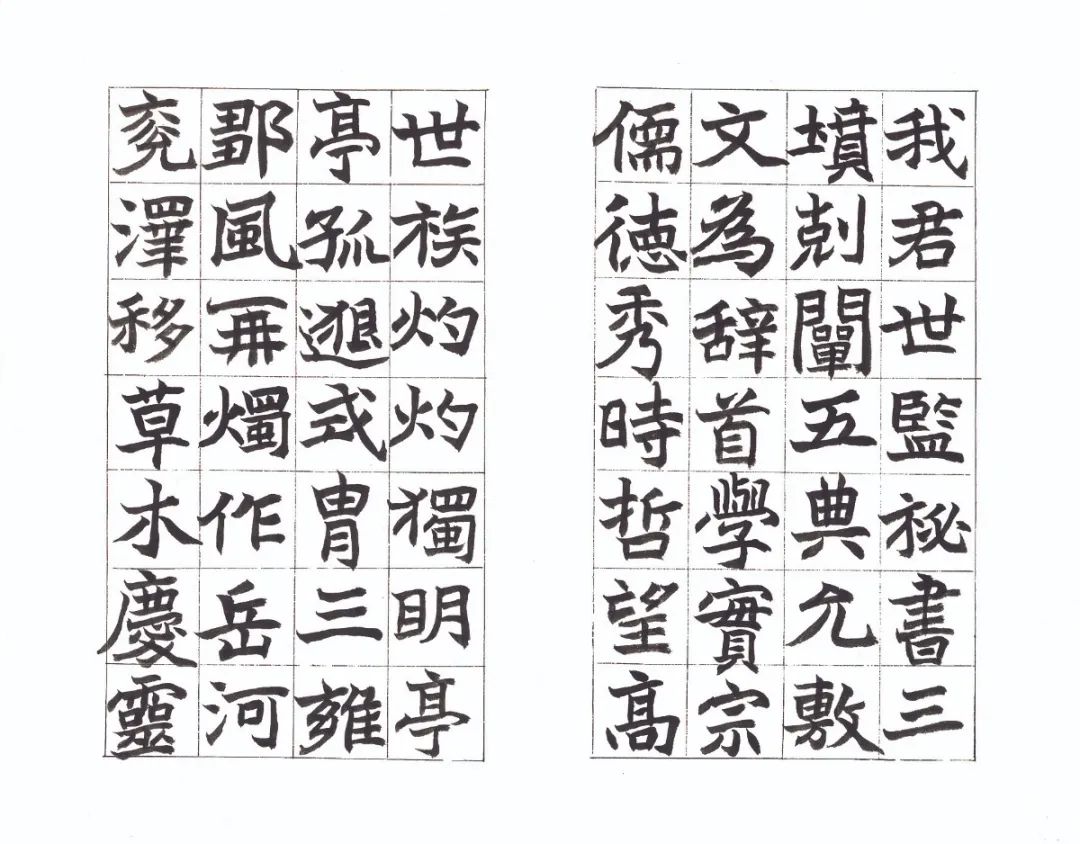 我君世監祕書三
墳剋闡五典允敷
文為辞首學實宗
儒徳秀時哲望高
世族灼灼獨明亭
亭孤邈式胄三雍
鄒風再燭作岳河
兗澤移草木慶靈